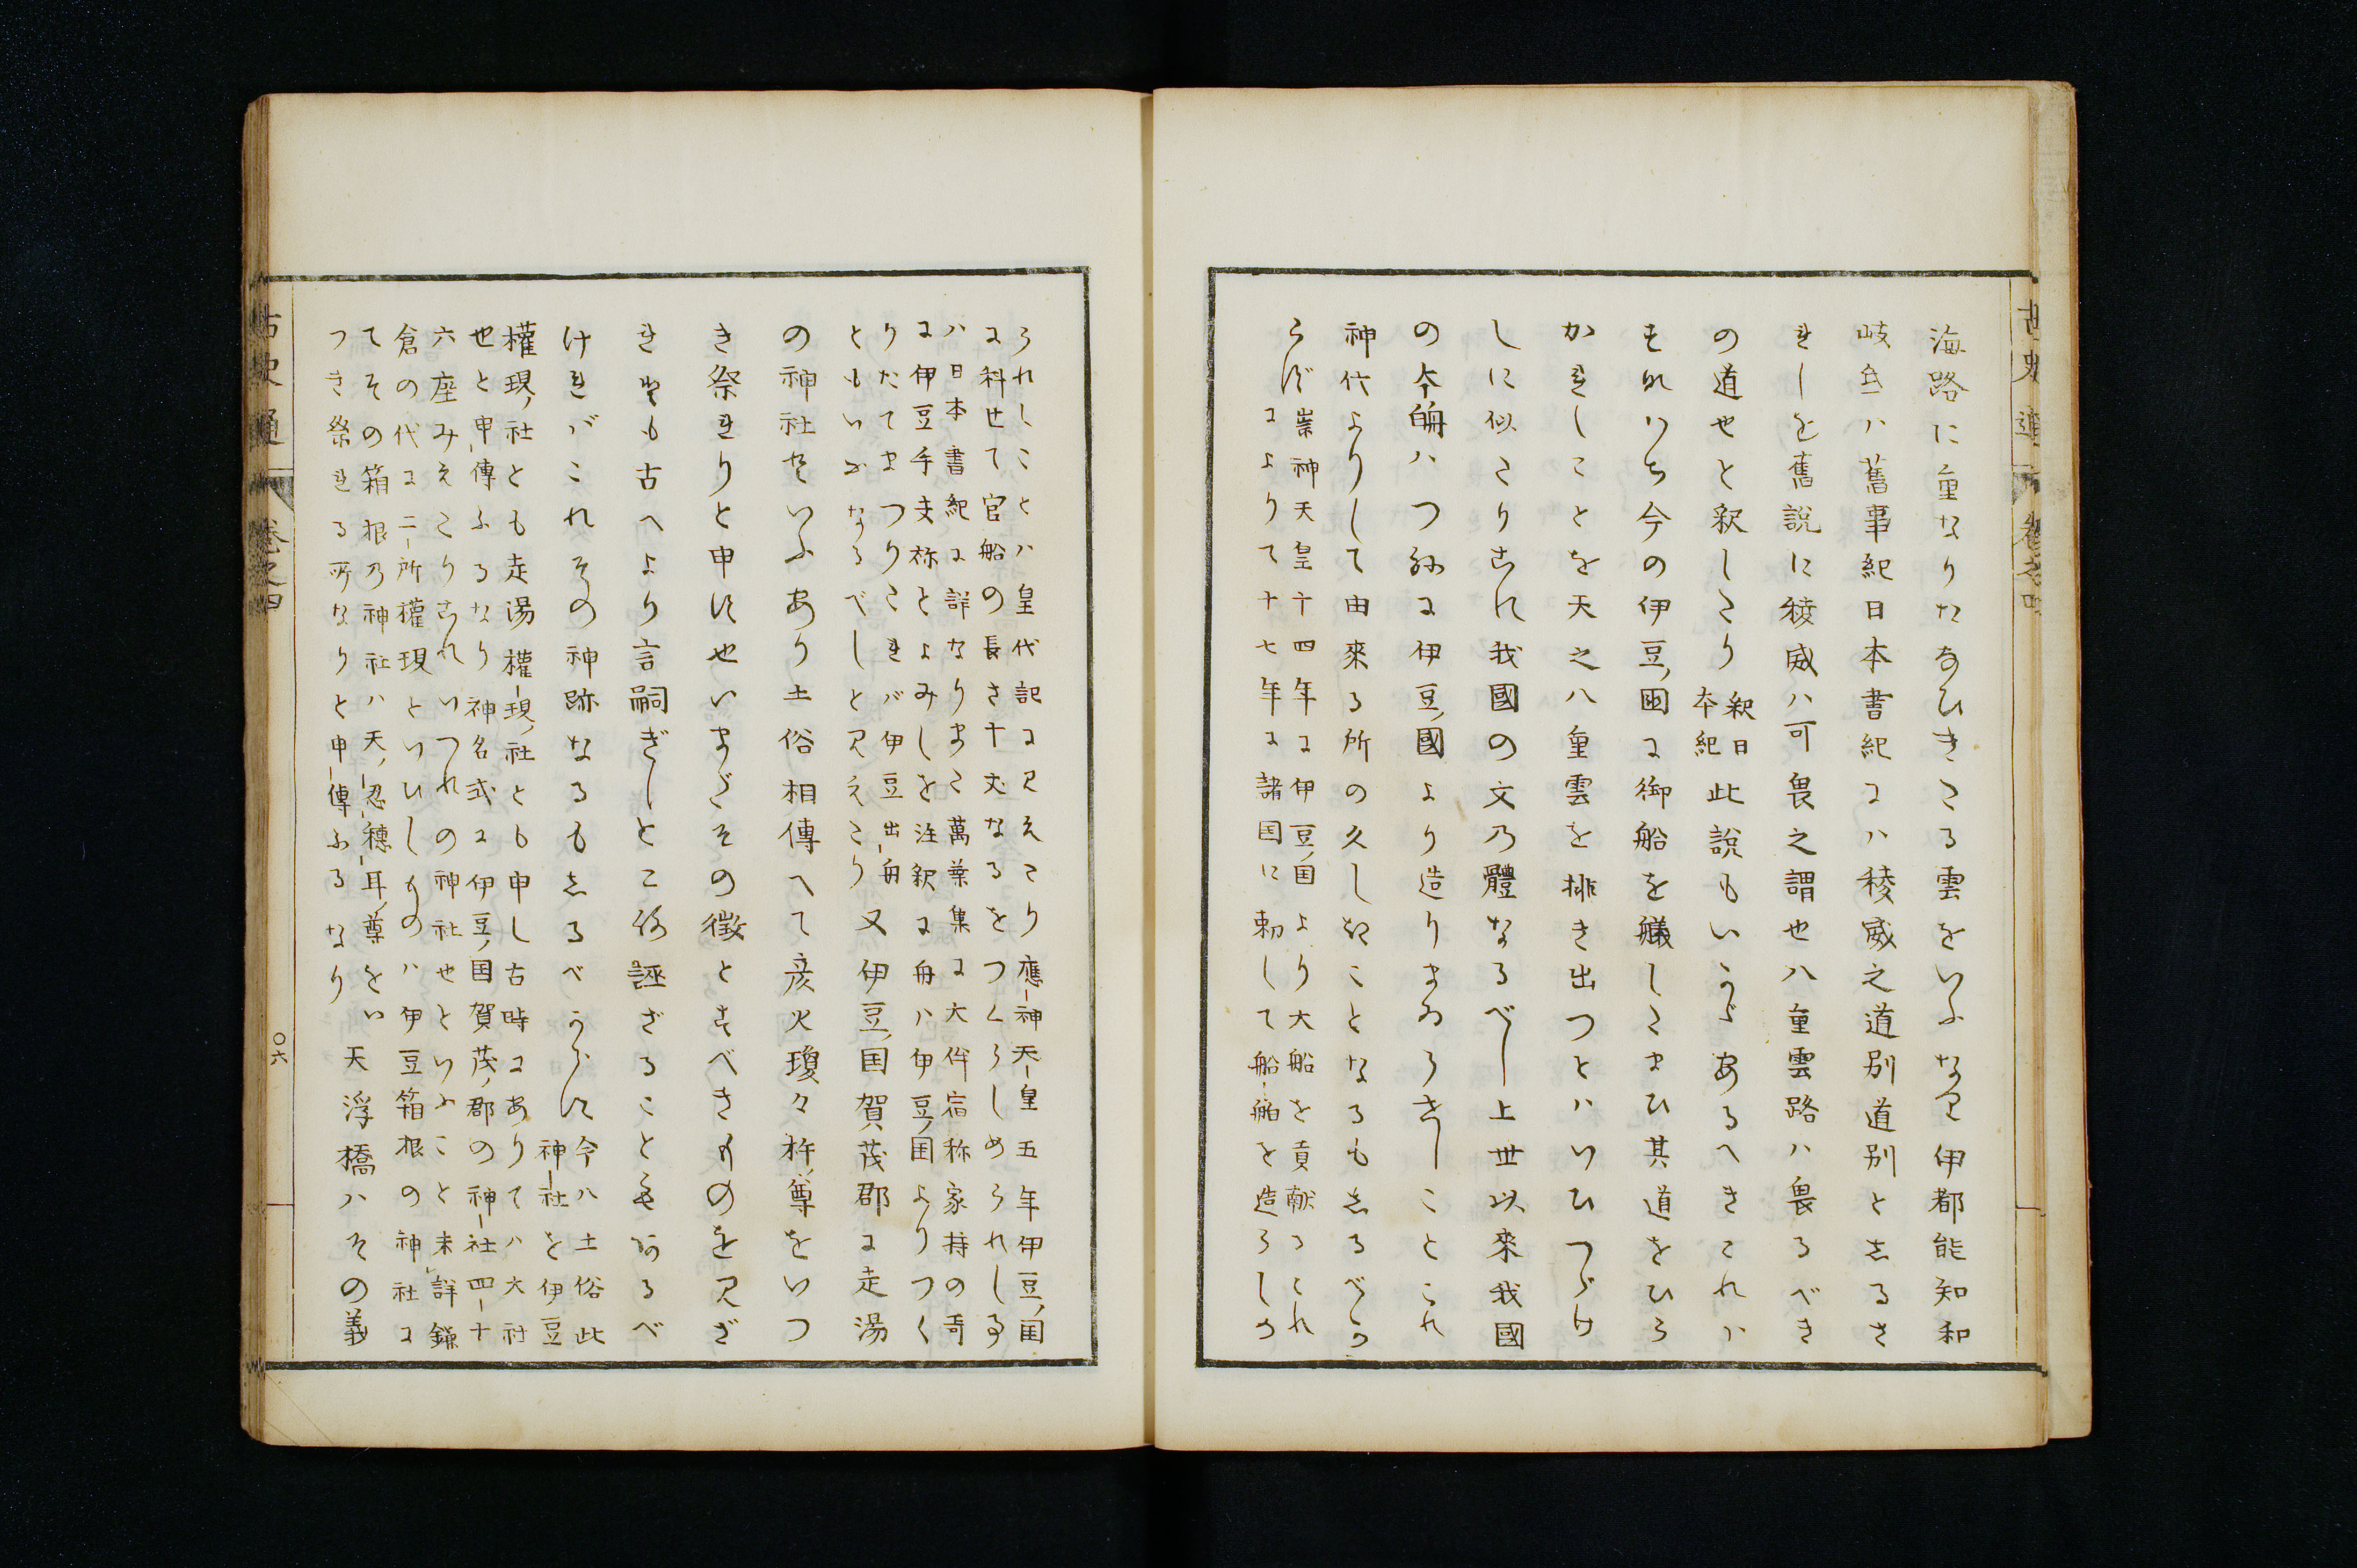 海路に重なりたなひきたる雲をいふなり伊都能知和
岐弖ハ舊事紀日本書紀にハ稜威之道別道別としるさ
れしを舊説に稜威ハ可畏之謂也八重雲路ハ畏るべき
の道也と釈したり
釈日
本紀
此説もいうゞあるへきこれハ
すなハち今の伊豆國に御船を艤したまひ其道をひら
かれしことを天之八重雲を排き出つとハいひつゞけ
しに似たりこれ我國の文の體なるべし上世以來我國
の大舶ハつねに伊豆國より造りまゐらせしことこれ
神代よりして由來る所の久しきことなるもしるべか
らず
崇神天皇十四年に伊豆国より大船を貢献るこれ
によりて十七年に諸国に勅して船舶を造らしめ
られしことハ皇代記に見えたり應神天皇五年伊豆国
に科せて官船の長さ十丈なるをつくらしめられし事
ハ日本書紀に詳なりまた萬葉集に大伴宿祢家持の哥
に伊豆手夫祢とよみしを注釈に舟ハ伊豆国よりつく
りたてまつりたれバ伊豆出舟
ともいふなるべしと見えたり
又伊豆国賀茂郡に走湯
の神社といふあり土俗相傳へて彦火瓊々杵尊をいつ
き祭れりと申す也いまだその徴とすべきものを見ざ
れども古へより言嗣ぎしところ誣ざることもあるべ
けれバこれその神跡なるもしるべからず
今ハ土俗此
神社を伊豆
權現社とも走湯權現社とも申し古時にありてハ大社
也と申傳ふるなり神名式に伊豆国賀茂郡の神社四十
六座みえたりこれいつれの神社也といふこと未詳鎌
倉の代に二所權現といひしものハ伊豆箱根の神社に
てその箱根の神社ハ天忍穗耳尊をい
つき祭れる所なりと申傳ふるなり
天浮橋ハその義
古史通 卷之四 〇六